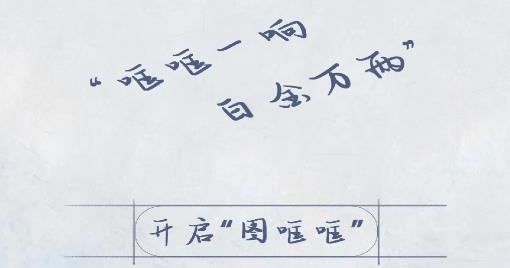 “哐哐一响
白金万两”
开启“图哐哐”